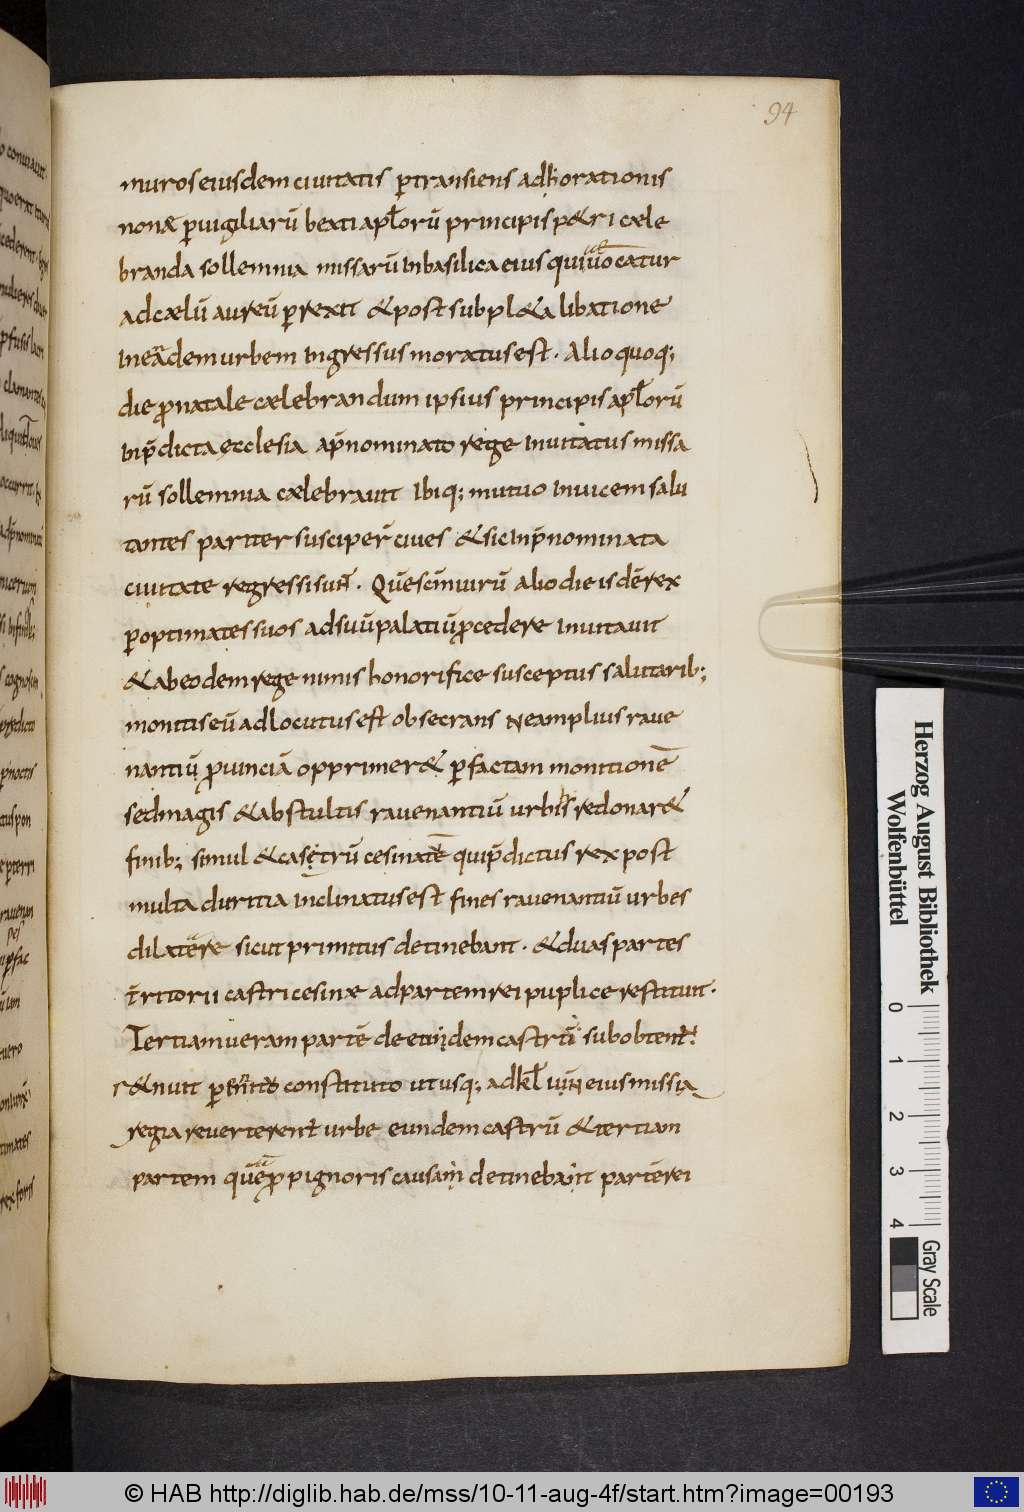 94
muros eiusdem ciuitatis ptransiens ad horationis
nonæ puigiliarū beati aplorū principis p&ri cæle
branda sollemnia missarū in basilica eius qui uocatur
ad cælū aureū prexit & post subpl&a libatione
in eadem urbem ingressus moratus est. Alio quoq;
die pro natale cælebrandum ipsius principis aplorū
in p̄dicta ęcclesia ap̄nominato rege inuitatus missa
rū sollemnia cælebrauit Ibiq; mutuo inuicem salu
tantes pariter susciper̄ ciues & sic in p̄nominata
ciuitate regressi sunt. Quē scm̄ uirū alio die isdē rex
p optimates suos ad suū palatiū pcedere inuitauit
& ab eodem rege nimis honorifice susceptus salutarib;
monitis eū adlocutus est obsecrans Ne amplius raue
nantiū prouinciā opprimer& p factam monitionē
sed magis & abstultis rauenantiū urbis redonar&
finib; simul & casętrū cesinatē qui p̄dictus rex post
multa duritia inclinatus est fines rauenantiū urbes
dilatare sicut primitus detinebant. & duas partes
t̄ritorii castri cesinæ ad partem rei puplice restituit.
Tertiam ueram partē de eundem castrū sub obtent
&nuit constituto ut usq; ad kl iun eius missia
regia reuerterent urbe eundem castrū & tertiam
partem quē p pignoris causam detinebant partē rei
Herzog August Bibliothek
Wolfenbüttel
0 1 2 3 4
Gray Scale
© HAB http://diglib.hab.de/mss/10-11-aug-4f/start.htm?image=00193